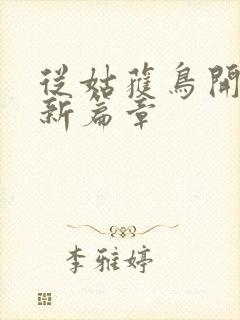 從姑蒦鳥開
新篇章
李雅婷